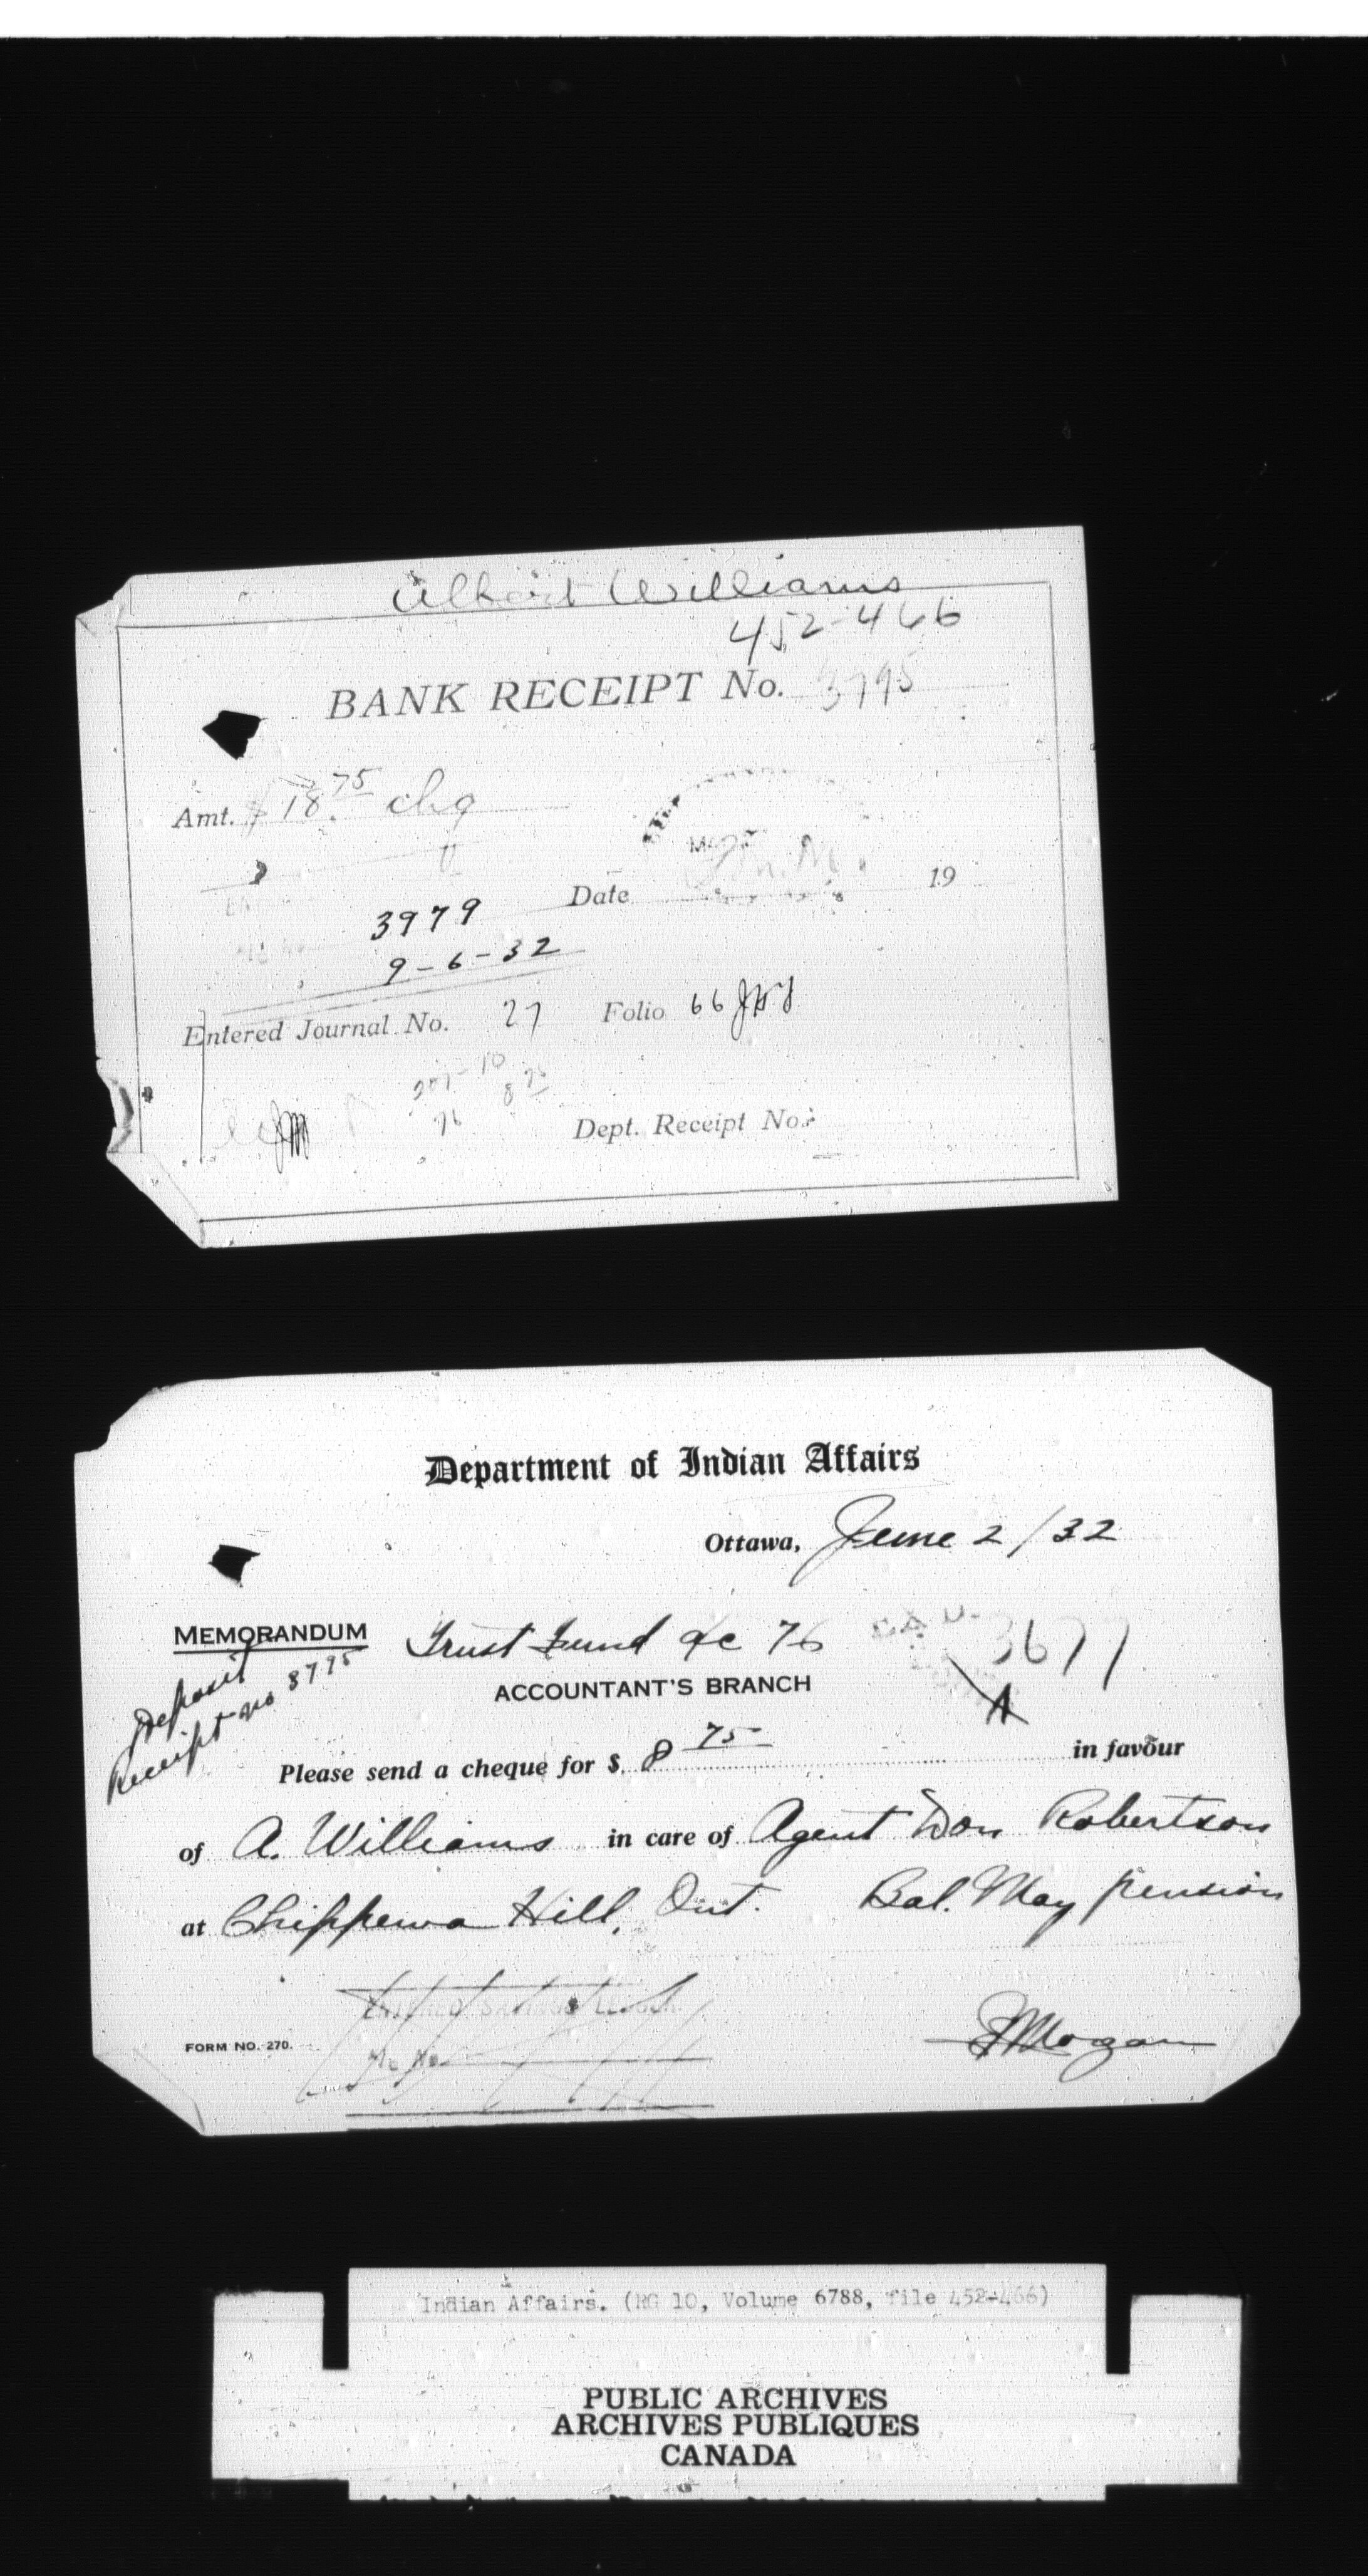 Albert Williams
452-466
BANK RECEIPT No. 3795
Amt. $18.75 chq
Date 19
3979
9-6-32
Entered Journal No. 27 Folio 66
8 75
76
Dept. Receipt No.
Department of Indian Affairs
Ottawa, June 2/32
MEMORANDUM Trust Fund a/c 76
3677
A
ACCOUNTANT'S BRANCH
Deposit
Receipt no 8795
Please send a cheque for $ 8 75 in favour
of A. Williams in care of Agent Don Robertson
at Chippewa Hill, Ont. Bal. May pension
ENTERED SAVINGS LEDGER
FORM NO. 270.
Morgan
Indian Affairs. (RG 10, Volume 6788, file 452-466)
PUBLIC ARCHIVES
ARCHIVES PUBLIQUES
CANADA